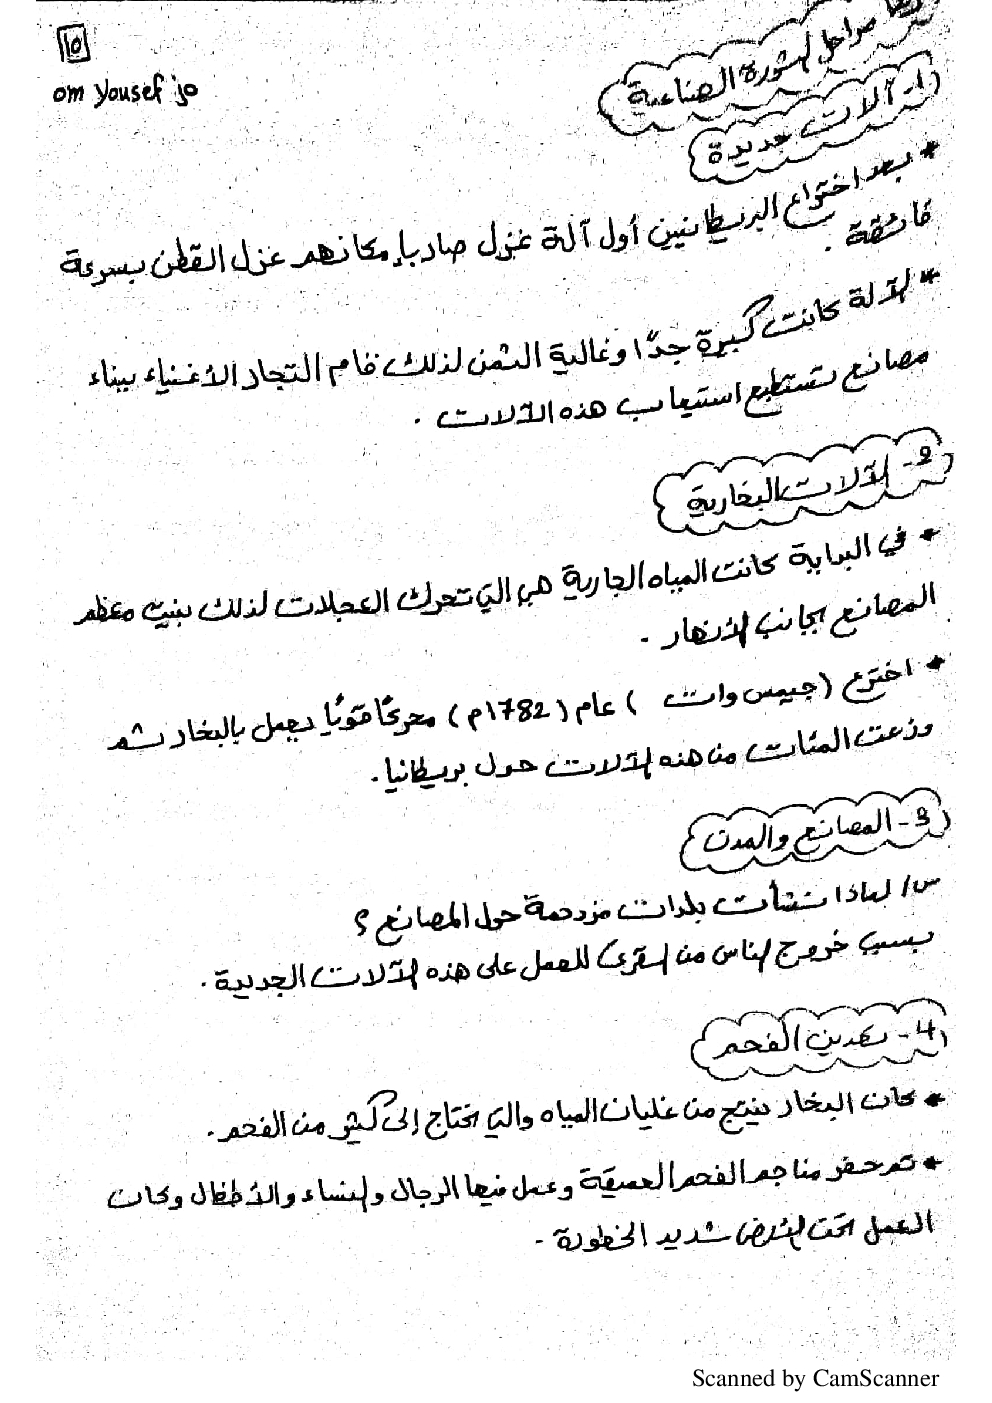 10
om yousef jo
مراحل الثورة الصناعية
1- آلات جديدة
* بعد اختراع البريطانيين أول آلة غزل صار بإمكانهم غزل القطن بسرعة
فائقة .
* الآلة كانت كبيرة جدًا وغالية الثمن لذلك قام التجار الأغنياء ببناء
مصانع تستطيع استيعاب هذه الآلات .
2- الآلات البخارية
* في البداية كانت المياه الجارية هي التي تحرك العجلات لذلك بنيت معظم
المصانع بجانب الأنهار .
* اخترع (جيمس وات ) عام (1782م) محركًا قويًا يعمل بالبخار ثم
وزعت المئات من هذه الآلات حول بريطانيا .
3- المصانع والمدن
س/ لماذا نشأت بلدات مزدحمة حول المصانع ؟
بسبب خروج الناس من القرى للعمل على هذه الآلات الجديدة .
4- تعدين الفحم
* كان البخار ينتج من غليان المياه والتي تحتاج إلى كثير من الفحم .
* تم حفر مناجم الفحم العميقة وعمل فيها الرجال والنساء والأطفال وكان
العمل تحت الأرض شديد الخطورة .
Scanned by CamScanner